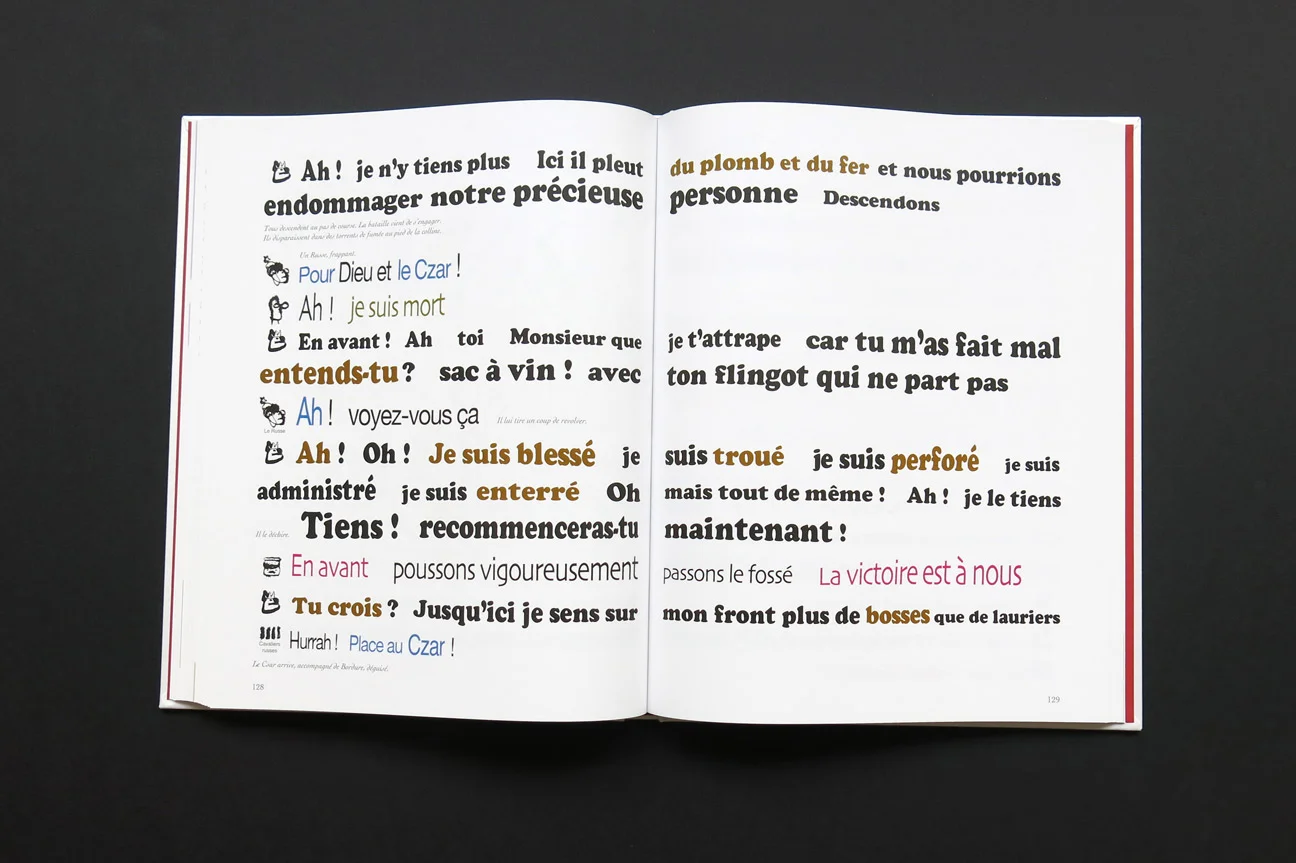 Ah ! je n'y tiens plus Ici il pleut du plomb et du fer et nous pourrions
endommager notre précieuse personne Descendons
Tous descendent au pas de course. La bataille vient de s'engager.
Ils disparaissent dans des torrents de fumée au pied de la colline.
Un Russe, frappant.
Pour Dieu et le Czar !
Ah ! je suis mort
En avant ! Ah toi Monsieur que je t'attrape car tu m'as fait mal
entends-tu ? sac à vin ! avec ton flingot qui ne part pas
Ah ! voyez-vous ça Il lui tire un coup de revolver.
Le Russe
Ah ! Oh ! Je suis blessé je suis troué je suis perforé je suis
administré je suis enterré Oh mais tout de même ! Ah ! je le tiens
Il le déchire. Tiens ! recommenceras-tu maintenant !
En avant poussons vigoureusement passons le fossé La victoire est à nous
Tu crois ? Jusqu'ici je sens sur mon front plus de bosses que de lauriers
Hurrah ! Place au Czar !
Cavaliers
russes
Le Czar arrive, accompagné de Bordure, déguisé.
128
129